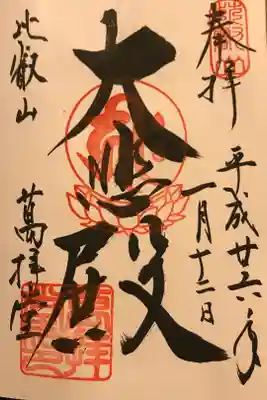 奉拝
平成廿六年
一月十二日
大悲殿
比叡山
萬拝堂